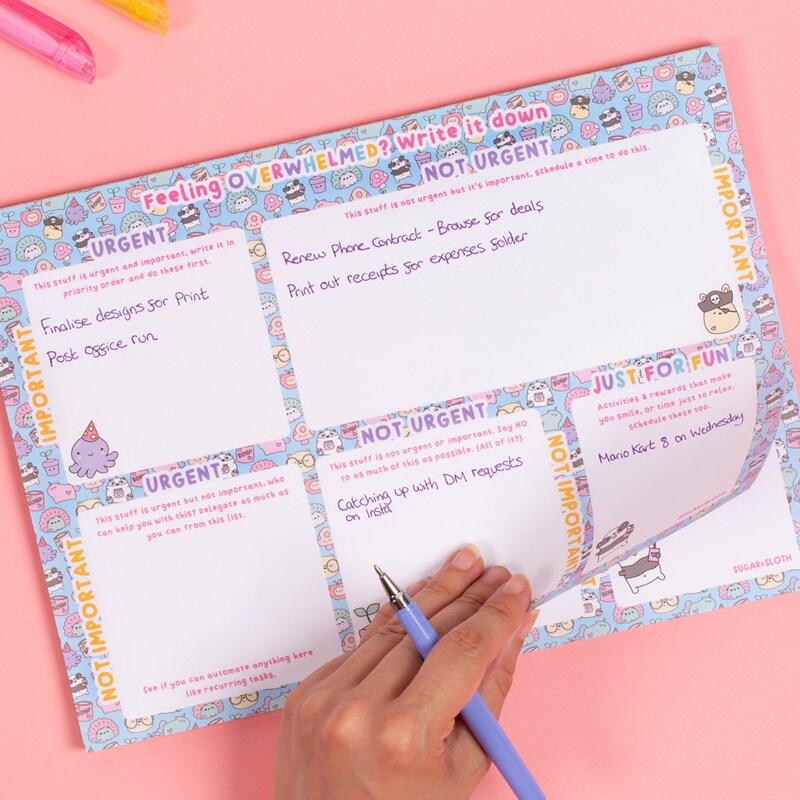 Feeling OVERWHELMED? Write it down
URGENT
This stuff is urgent and important, write it in
priority order and do these first.
Finalise designs for Print
Post office run
IMPORTANT
NOT URGENT
This stuff is not urgent but it's important, schedule a time to do this.
Renew Phone Contract - Browse for deals
Print out receipts for expenses folder
IMPORTANT
URGENT
This stuff is urgent but not important, who
can help you with this? Delegate as much as
you can from this list.
See if you can automate anything here
like recurring tasks.
NOT IMPORTANT
NOT URGENT
This stuff is not urgent or important. Say NO
to as much of this as possible. (All of it?)
Catching up with DM requests
on Insta
NOT IMPORTANT
JUST FOR FUN
Activities & rewards that make
you smile, or time just to relax.
Schedule these too.
Mario Kart 8 on Wednesday
SUGAR&SLOTH